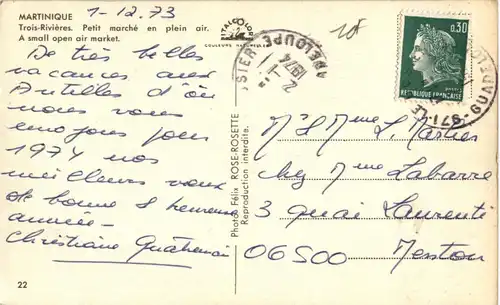 MARTINIQUE
1-12.73
Trois-Rivières. Petit marché en plein air.
A small open air market.
COULEURS NATURELLES
18
0,30
RÉPUBLIQUE FRANÇAISE
2-1
1974
De très belles
vacances aux
Antilles d'où
nous vous
envoyons pour
1974 nos
meilleurs vœux
de bonne & heureuse
année
Christiane
Photos Félix ROSE-ROSETTE
Reproduction interdite.
M. & Mme L.
chez Mme Labarre
3 quai Laurenti
06500 Menton
22